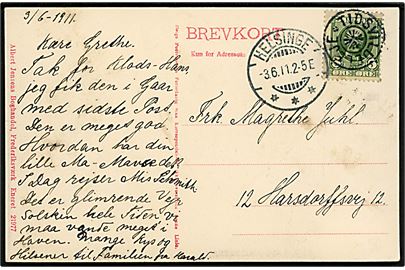 3/6-1911.
BREVKORT
Kun for Adressen.
HELSINGE
3.6.11.2-5E
TIDSVILDE
5 ØRE 5 ØRE
Kære Grethe.
Tak for Klods-Hans,
jeg fik den i Gaar
med sidste Post.
Den er meget god.
Hvordan har din
lille Ma-Mave det?
I dag rejser Mis Schmith.
Det er glimrende Vejr
Solskin hele Tiden vi
maa vande meget i
Haven. Mange Kys og
Hilsener til Familien fra Harald.
Frk Magrethe Juhl.
12 Harsdorffsvej 12.
Albert Jensens Boghandel, Frederiksværk Eneret 2077